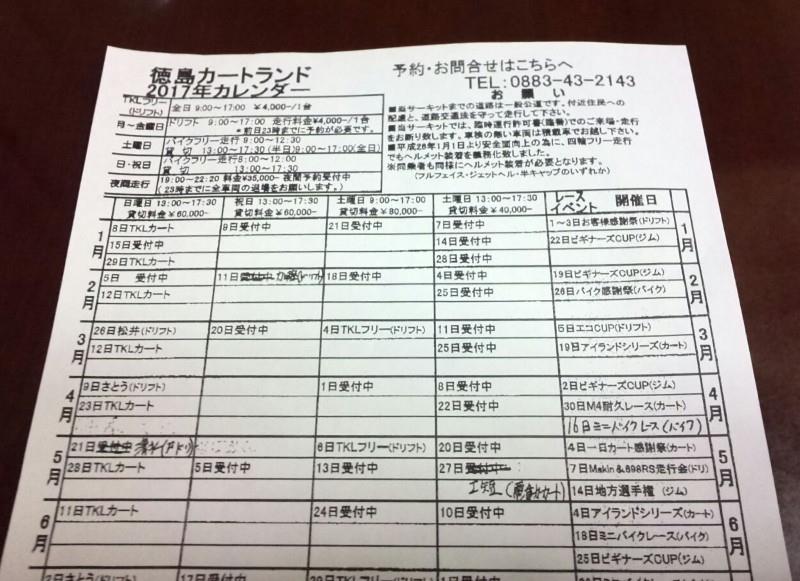 徳島カートランド
2017年カレンダー
予約・お問合せはこちらへ
TEL:0883-43-2143
お 願 い
TKLラリー(ドリフト) 全日 9:00~17:00 ¥4,000-/1台
月~金曜日 ドリフト 9:00~17:00 走行料金¥4,000-/1台
*前日23時までに予約が必要です。
土曜日 バイクラリー走行 9:00~12:30
貸 切 13:00~17:30(半日)9:00~17:00(全日)
日・祝日 バイクラリー走行 8:00~12:00
貸 切 13:00~17:30
夜間走行 19:00~22:20 料金¥35,000- 夜間予約受付中
(23時までに全車両の退場をお願いします。)
■当サーキットまでの道路は一般公道です。付近住民への
配慮と、道路交通法を守って走行して下さい。
■当サーキットでは、臨時運行許可書(臨番)でのご来場・走行
をお断り致します。車検の無い車両は積載車でお越し下さい。
■平成28年1月1日より安全面向上の為に、四輪フリー走行
でもヘルメット装着を義務化致しました。
※同乗者も同様にヘルメット装着が必要となります。
(フルフェイス・ジェットヘル・半キャップのいずれか)
日曜日 13:00~17:30 貸切料金¥60,000-
祝日 13:00~17:30 貸切料金¥60,000-
土曜日 9:00~17:00 貸切料金¥80,000-
土曜日 13:00~17:30 貸切料金¥40,000-
レースイベント 開催日
1月 8日TKLカート 9日受付中 21日受付中 7日受付中 1~3日お客様感謝祭(ドリフト) 1月
15日受付中 14日受付中 22日ビギナーズCUP(ジム)
29日TKLカート 28日受付中
2月 5日 受付中 11日受付中 (ドリフト) 18日受付中 4日受付中 19日ビギナーズCUP(ジム) 2月
12日TKLカート 25日受付中 26日バイク感謝祭(バイク)
3月 26日松井(ドリフト) 20日受付中 4日TKLフリー(ドリフト) 11日受付中 5日エコCUP(ドリフト) 3月
12日TKLカート 25日受付中 19日アイランドシリーズ(カート)
4月 9日さとう(ドリフト) 1日受付中 8日受付中 2日ビギナーズCUP(ジム) 4月
23日TKLカート 22日受付中 30日M4耐久レース(カート)
16日ミニバイクレース(バイク)
5月 21日受付中 6日TKLフリー(ドリフト) 20日受付中 4日一日カート感謝祭(カート) 5月
28日TKLカート 5日受付中 13日受付中 27日受付中 7日Makin&698RS走行会(ドリ)
14日地方選手権 (ジム)
6月 11日TKLカート 24日受付中 10日受付中 4日アイランドシリーズ(カート) 6月
18日ミニバイクレース(バイク)
25日ビギナーズCUP(ジム)